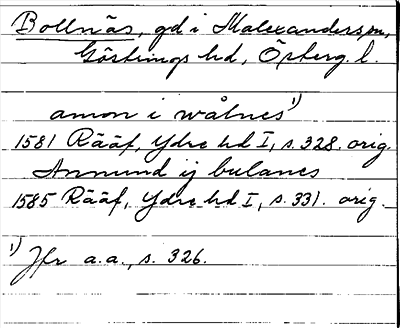 Bollnäs, gd i Malexanders sn,
Göstrings hd, Österg. l.
amon i wålnes¹⁾
1581 Rääf, Ydre hd I, s. 328. orig.
Amund ij bulanes
1585 Rääf, Ydre hd I, s. 331. orig.
¹⁾ Jfr a.a., s. 326.